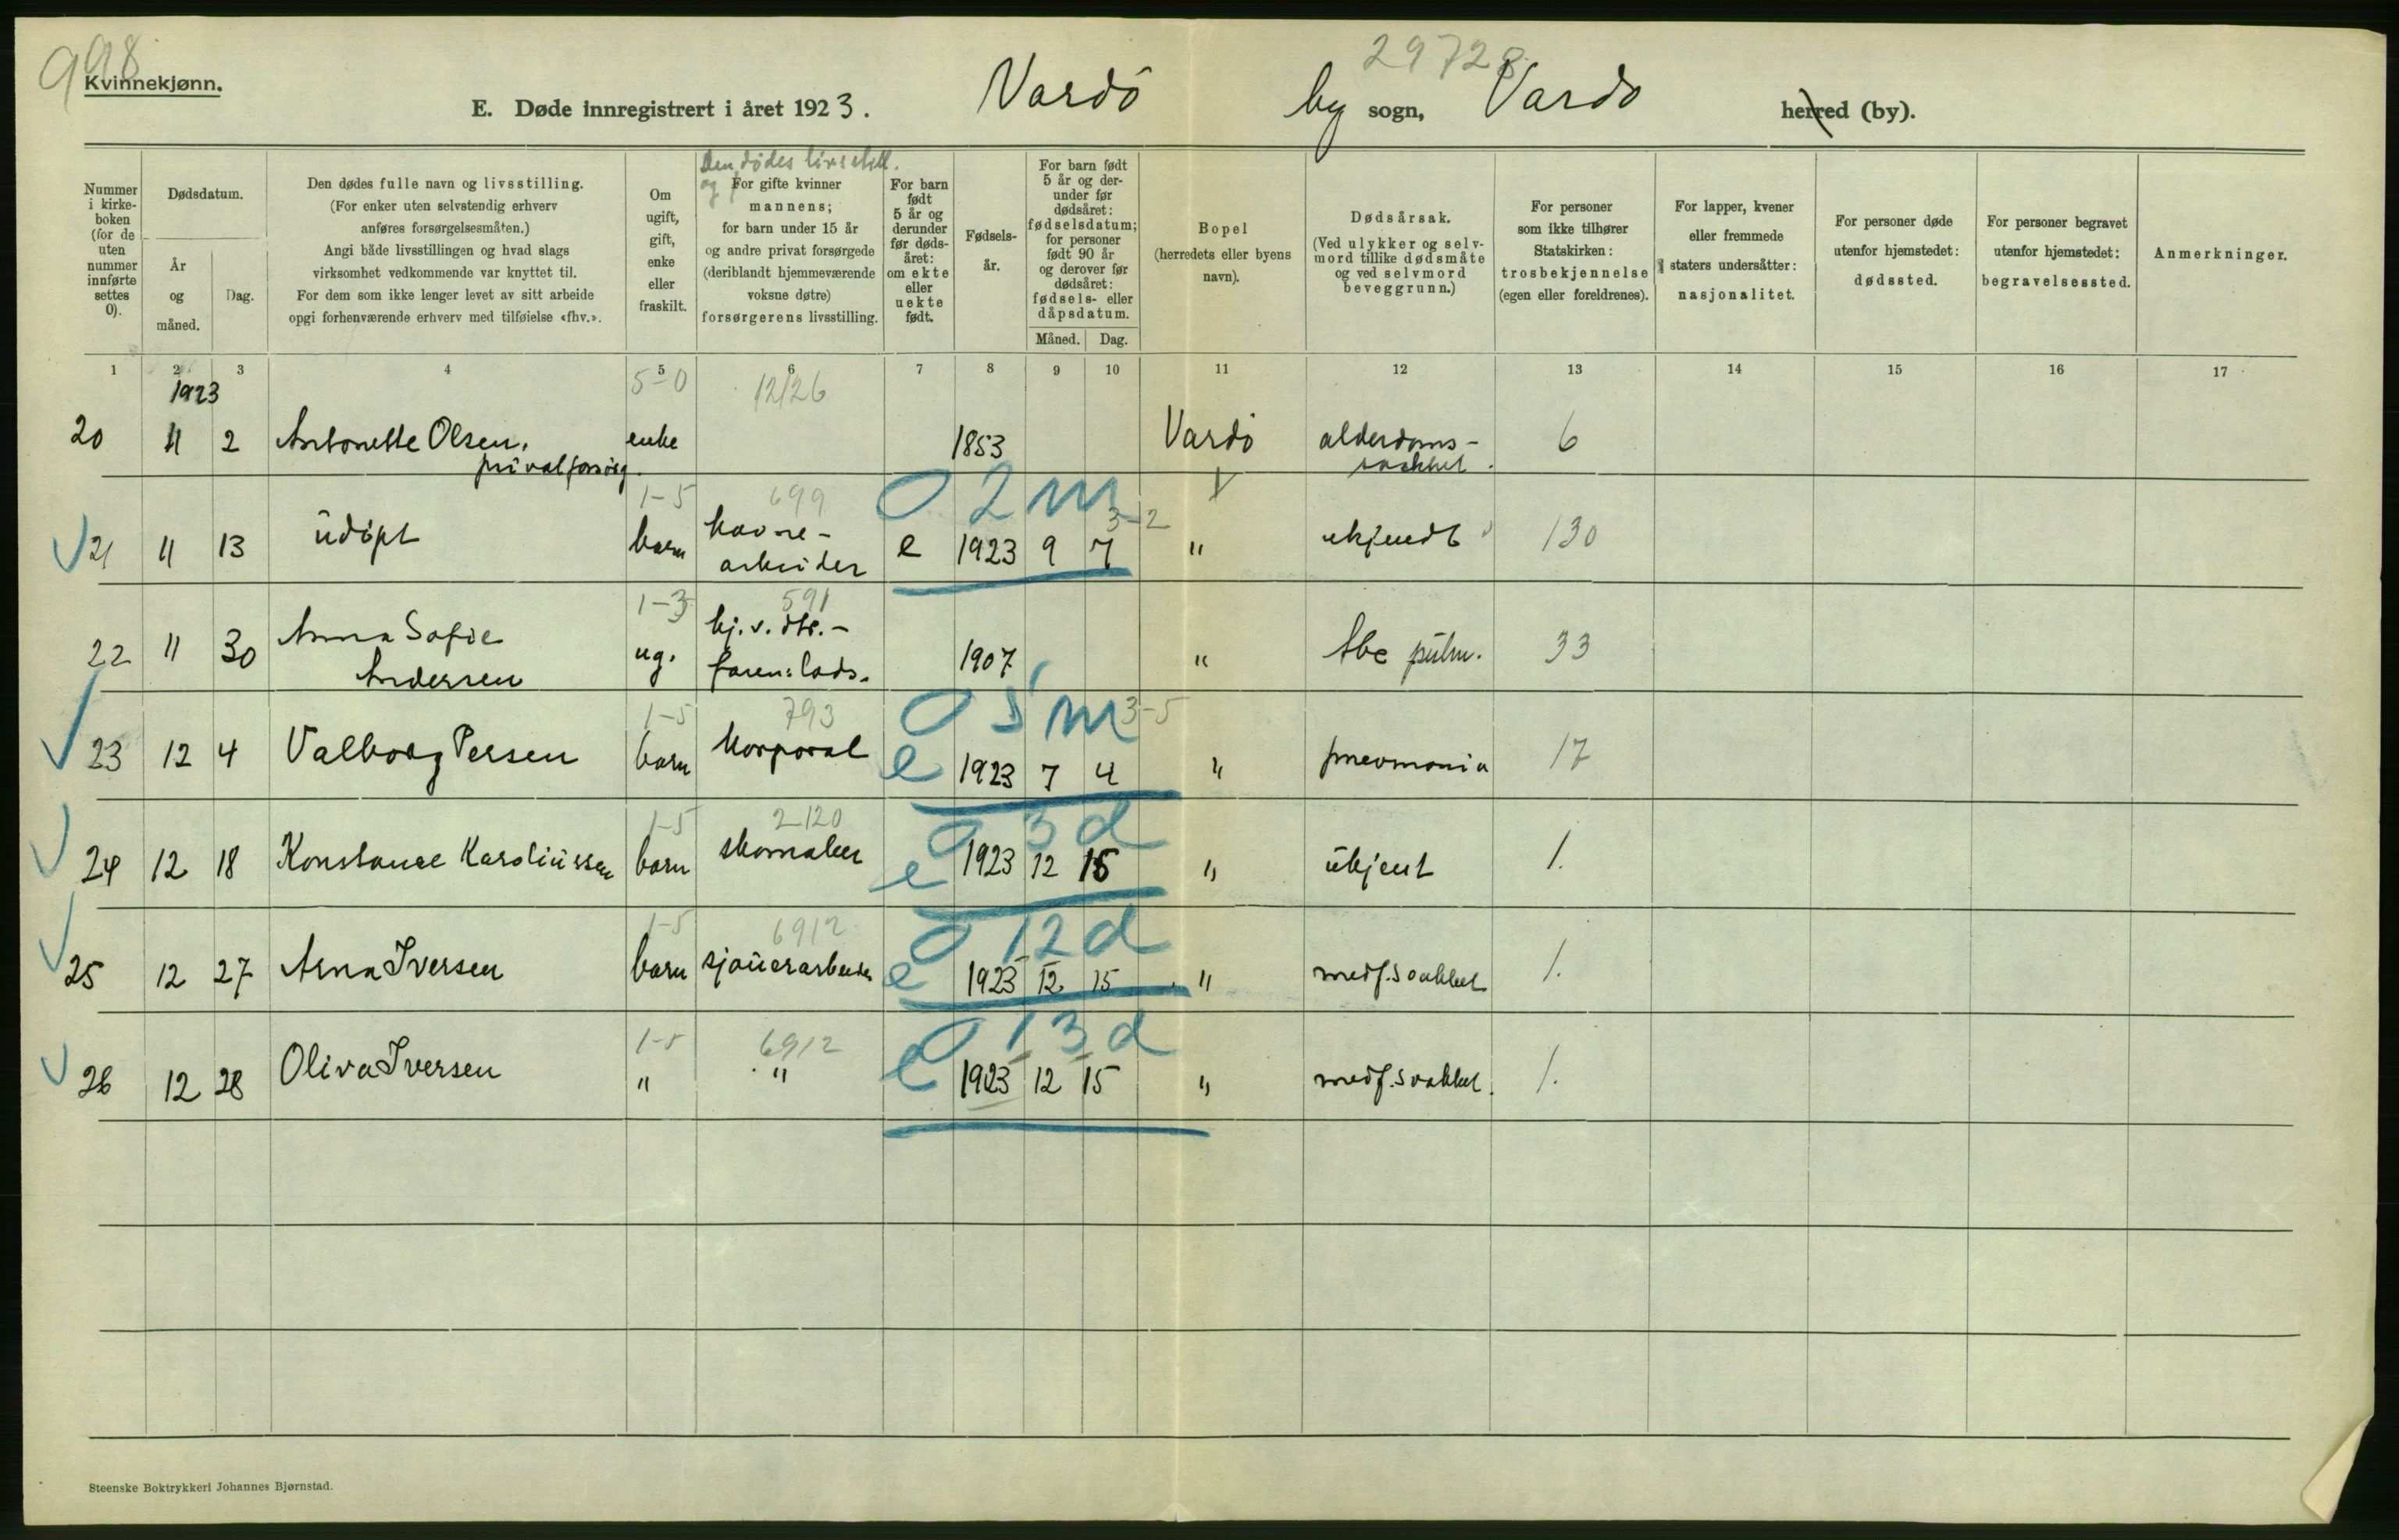 998
29728
Kvinnekjønn.
E. Døde innregistrert i året 1923. Vardö by sogn, Vardö herred (by).
Nummer i kirke-boken (for de uten nummer innførte settes 0).
Dødsdatum.
År og måned.
Dag.
Den dødes fulle navn og livsstilling.
(For enker uten selvstendig erhverv
anføres forsørgelsesmåten.)
Angi både livsstillingen og hvad slags
virksomhet vedkommende var knyttet til.
For dem som ikke lenger levet av sitt arbeide
opgi forhenværende erhverv med tilføielse «fhv.».
Om ugift, gift, enke eller fraskilt.
Den dödes livsstill.
og
For gifte kvinner
mannens;
for barn under 15 år
og andre privat forsørgede
(deriblandt hjemmeværende
voksne døtre)
forsørgerens livsstilling.
For barn født 5 år og derunder før døds-året: om ekte eller uekte født.
Fødsels-år.
For barn født 5 år og der-under før dødsåret: fødselsdatum; for personer født 90 år og derover før dødsåret: fødsels- eller dåpsdatum.
Måned. Dag.
Bopel
(herredets eller byens
navn).
Dødsårsak.
(Ved ulykker og selv-
mord tillike dødsmåte
og ved selvmord
beveggrunn.)
For personer
som ikke tilhører
Statskirken:
trosbekjennelse
(egen eller foreldrenes).
For lapper, kvener
eller fremmede
staters undersåtter:
nasjonalitet.
For personer døde
utenfor hjemstedet:
dødssted.
For personer begravet
utenfor hjemstedet:
begravelsessted.
Anmerkninger.
1 2 3 4 5 6 7 8 9 10 11 12 13 14 15 16 17
1923 5-0 12/26
20 11 2 Antonette Olsen, enke 1853 Vardö alderdoms- 6
privat forsörg. svakhet.
1-5 699 0 2 m 3-2
21 11 13 udöpt barn havne- e 1923 9 7 " ukjendt 130
arbeider
1-3 591
22 11 30 Anna Sofie ug. hj.v. dtr.- 1907 " tbc pulm. 33
Andersen faren: lods.
1-5 793 0 5 m 3-5
23 12 4 Valborg Persen barn korporal e 1923 7 4 " pnevmonia 17
1-5 2120 0 3 d
24 12 18 Konstance Karoliussen barn skomaker e 1923 12 15 " ukjent 1.
1-5 6912 0 12 d
25 12 27 Arna Iversen barn sjauerarbeider e 1923 12 15 " medf. svakhet 1.
1-5 6912 0 13 d
26 12 28 Oliva Iversen " " e 1923 12 15 " medf. svakhet. 1.
Steenske Boktrykkeri Johannes Bjørnstad.